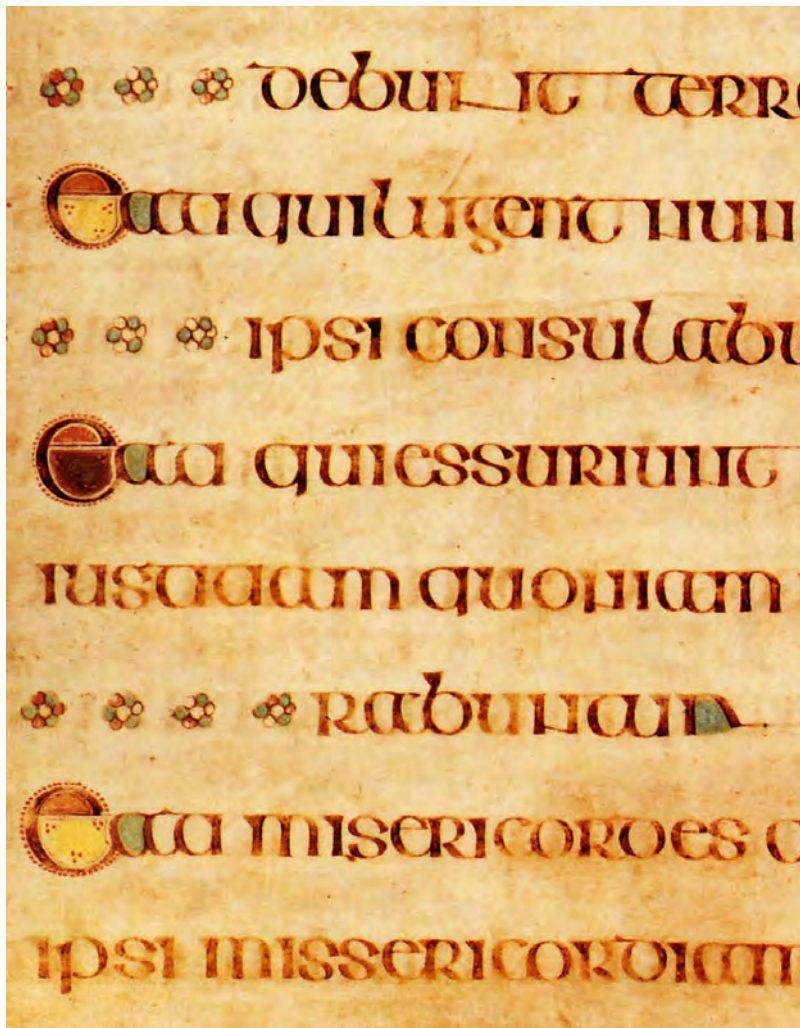 debunt terr
Beati qui lugent nun
ipsi consulabu
Beati qui essuriunt
iustitiam quoniam
rabuntur
Beati misericordes
ipsi missericordiam